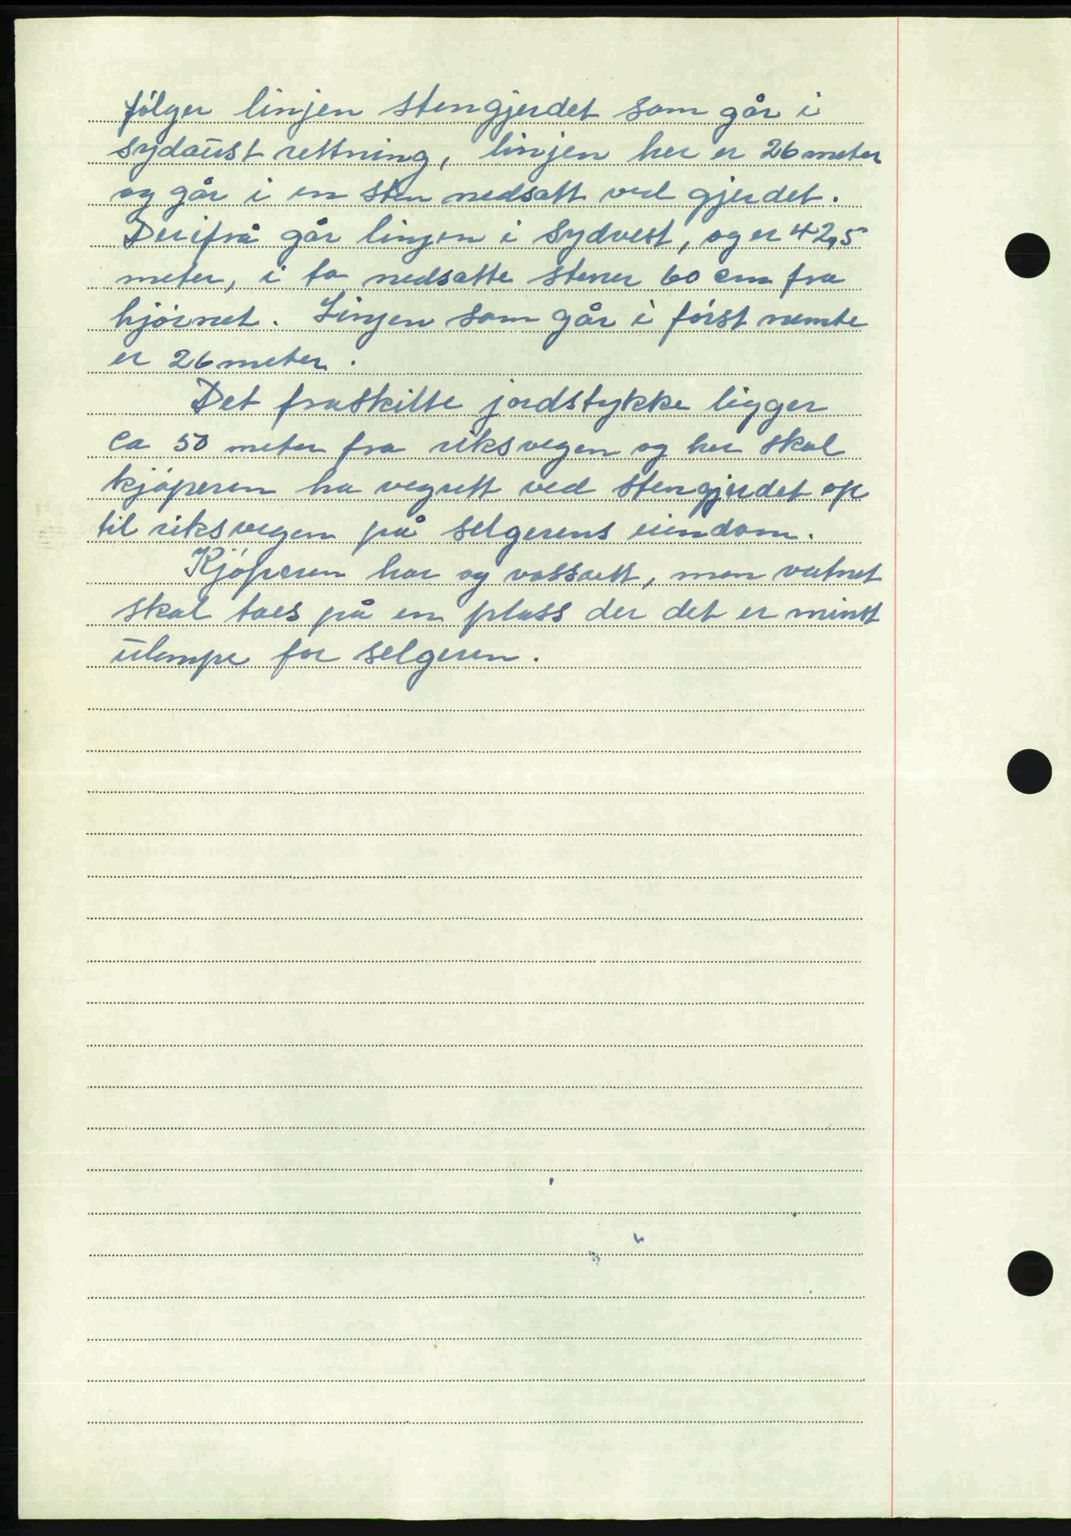 følger linjen stengjerdet som går i
sydaust rettning, linjen her er 26 meter
og går i en sten nedsatt ved gjerdet.
Derifrå går linjen i sydvest, og er 42,5
meter, i to nedsatte stener 60 cm fra
hjørnet. Linjen som går i først nemte
er 26 meter.
Det fraskilte jordstykke ligger
ca 50 meter fra riksvegen og her skal
kjøperen ha vegrett ved stengjerdet op
til riksvegen på selgerens eiendom.
Kjøperen har og vassrett, men vatnet
skal taes på en plass der det er minst
ulempe for selgeren.